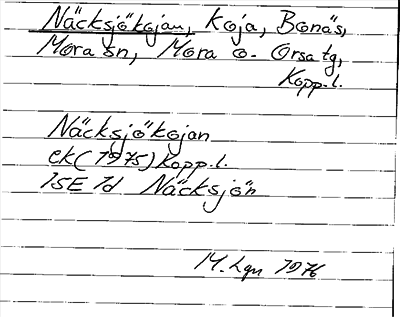 Näcksjökojan, Koja, Bonäs,
Mora sn, Mora o. Orsa tg,
Kopp.l.
Näcksjökojan
ek (1975) Kopp.l.
15E 1d Näcksjön
M. Lgn 1976